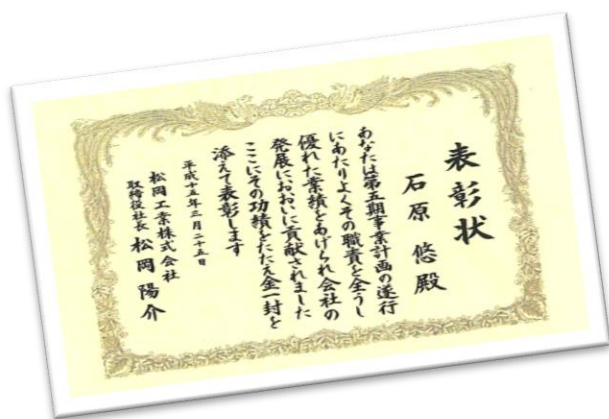 表彰状
石原 悠 殿
あなたは第五期事業計画の遂行
にあたりよくその職責を全うし
優れた業績をあげられ会社の
発展におおいに貢献されました
ここにその功績をたたえ金一封を
添えて表彰します
平成十五年三月二十五日
松岡工業株式会社
取締役社長 松岡陽介